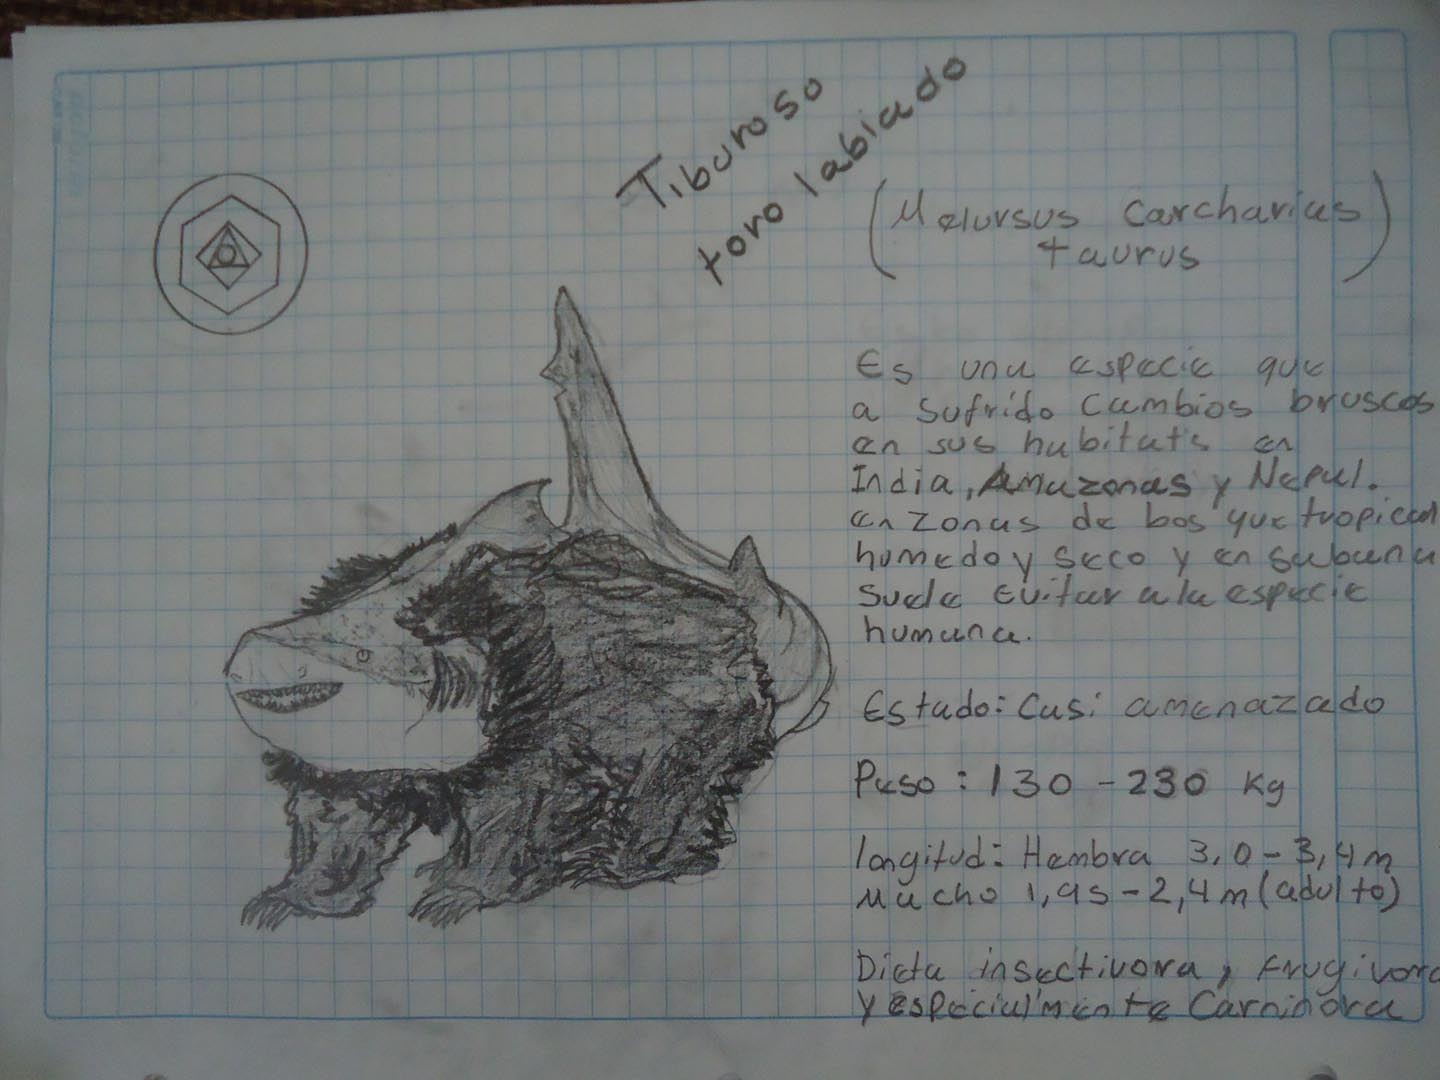 Tiburoso
toro labiado
(Melursus Carcharias
taurus)
Es una especie que
a sufrido cambios bruscos
en sus habitats en
India, Amazonas y Nepal.
en zonas de bosque tropical
humedo y seco y en sabana
suele evitar a la especie
humana.
Estado: Casi amenazado
Peso: 130 - 230 Kg
longitud: Hembra 3,0 - 3,4 m
Macho 1,95 - 2,4 m (adulto)
Dieta insectivora, frugivora
y especialmente Carninora